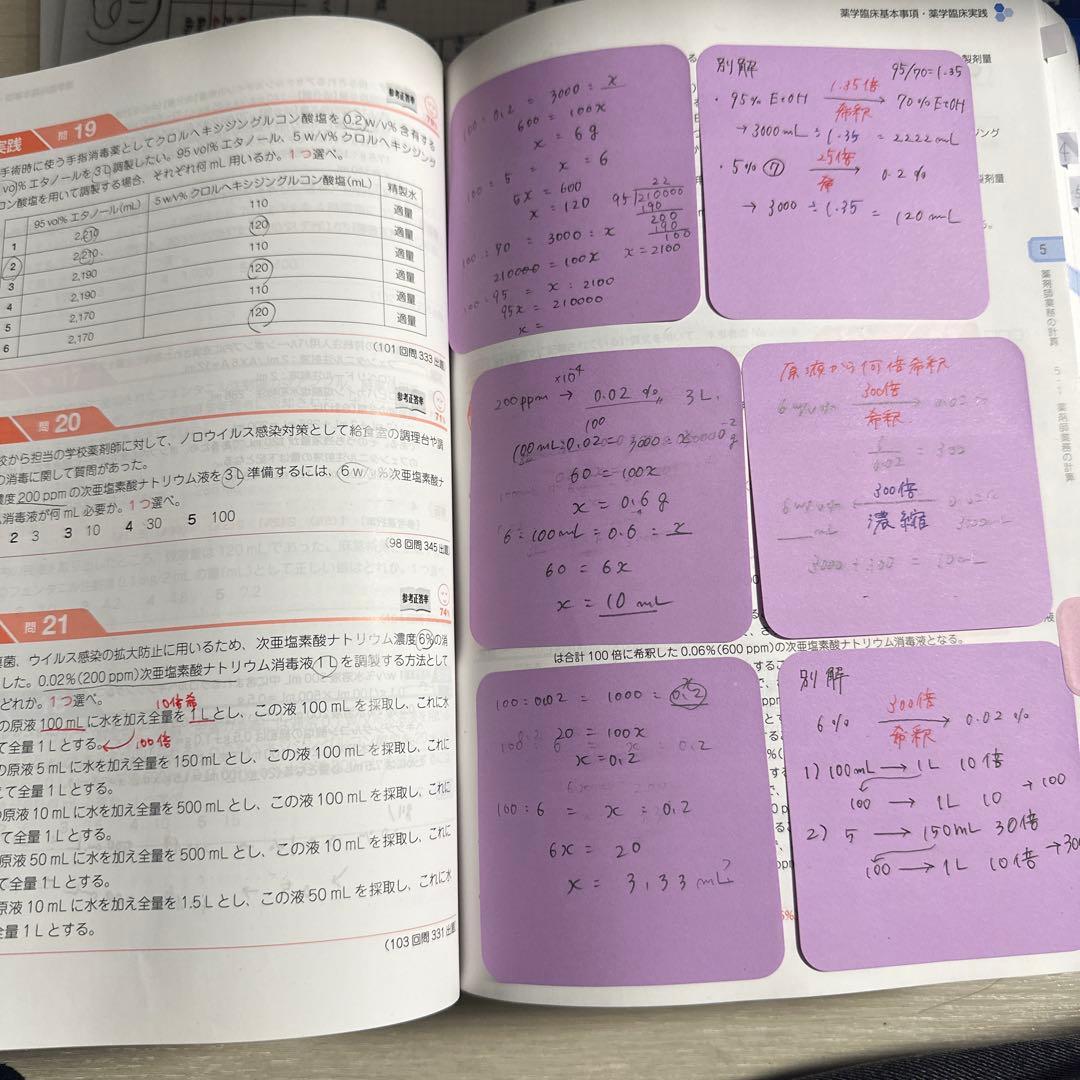 薬学臨床基本事項・薬学臨床実践
実践 問 19
参考正答率
手術時に使う手指消毒薬としてクロルヘキシジングルコン酸塩を0.2w/v%含有する
vol%エタノールを3L調製したい。95 vol%エタノール、5 w/v%クロルヘキシジング
コン酸塩を用いて調製する場合、それぞれ何mL用いるか。1つ選べ。
95 vol% エタノール(mL) 5 w/v% クロルヘキシジングルコン酸塩(mL) 精製水
1 2,210 110 適量
2 2,210 120 適量
3 2,190 110 適量
4 2,190 120 適量
5 2,170 110 適量
6 2,170 120 適量
(101回問333出題)
問 20
参考正答率
71%
校から担当の学校薬剤師に対して、ノロウイルス感染対策として給食室の調理台や調
の消毒に関して質問があった。
濃度200 ppmの次亜塩素酸ナトリウム液を3L準備するには、6 w/v%次亜塩素酸ナ
ム消毒液が何mL必要か。1つ選べ。
2 3 3 10 4 30 5 100
(98回問345出題)
問 21
参考正答率
74%
菌、ウイルス感染の拡大防止に用いるため、次亜塩素酸ナトリウム濃度6%の消
した。0.02%(200 ppm)次亜塩素酸ナトリウム消毒液1Lを調製する方法として
どれか。1つ選べ。
10倍希
の原液100 mLに水を加え全量を1Lとし、この液100 mLを採取し、これに水
て全量1Lとする。
100倍
の原液5 mLに水を加え全量を150 mLとし、この液100 mLを採取し、これに
えて全量1Lとする。
の原液10 mLに水を加え全量を500 mLとし、この液100 mLを採取し、これに
て全量1Lとする。
原液50 mLに水を加え全量を500 mLとし、この液10 mLを採取し、これに
て全量1Lとする。
原液10 mLに水を加え全量を1.5Lとし、この液50 mLを採取し、これに水
全量1Lとする。
(103回問331出題)
100:0.2 = 3000:x
600 = 100x
x = 6g
100:5 = x:6
5x = 600
x = 120
100:70 = 3000:x
210000 = 100x
x = 2100
100:95 = x:2100
95x = 210000
x =
22
95 210000
190
200
190
100
別解
95/70=1.35
・95% EtOH 1.35倍 希釈 → 70% EtOH
→3000mL ÷ 1.35 = 2222mL
・5% ㋗ 25倍 希 → 0.2%
→ 3000 ÷ 1.35 = 120mL
×10⁻⁴
200ppm → 0.02% 3L
100
60 = 100x
x = 0.6g
6:100mL = 0.6:x
60 = 6x
x = 10mL
原液から何倍希釈
300倍
6w/v% → 0.02%
希釈
6
0.02 = 300
300倍
濃縮
mL
3000mL
3000 ÷ 300 = 10mL
は合計100倍に希釈した0.06%(600 ppm)の次亜塩素酸ナトリウム消毒液となる。
100:0.02 = 1000:0.2
20 = 100x
x = 0.2
100:6 = x:0.2
6x = 20
x = 3.33mL?
別解
6% 300倍 希釈 → 0.02%
1) 100mL → 1L 10倍
100 → 1L 10 →100
2) 5 → 150mL 30倍
100 → 1L 10倍 →300
5
薬剤師業務の計算
5-1 薬剤師業務の計算